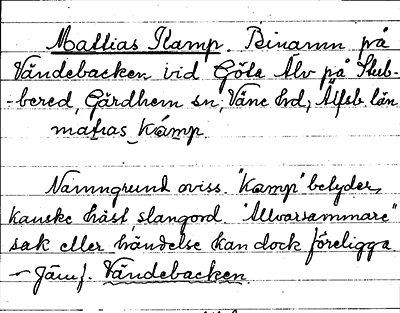 Mattias Kamp. Binamn på
Vändebacken vid Göta Älv på Stub-
-bered, Gärdhem sn, Väne hd, Älfsb. län
matias kamp.
Namngrund oviss. "Kamp" betyder,
kanske häst, slangord. "Allvarsammare"
sak eller händelse kan dock föreligga
– Jämf. Vändebacken.